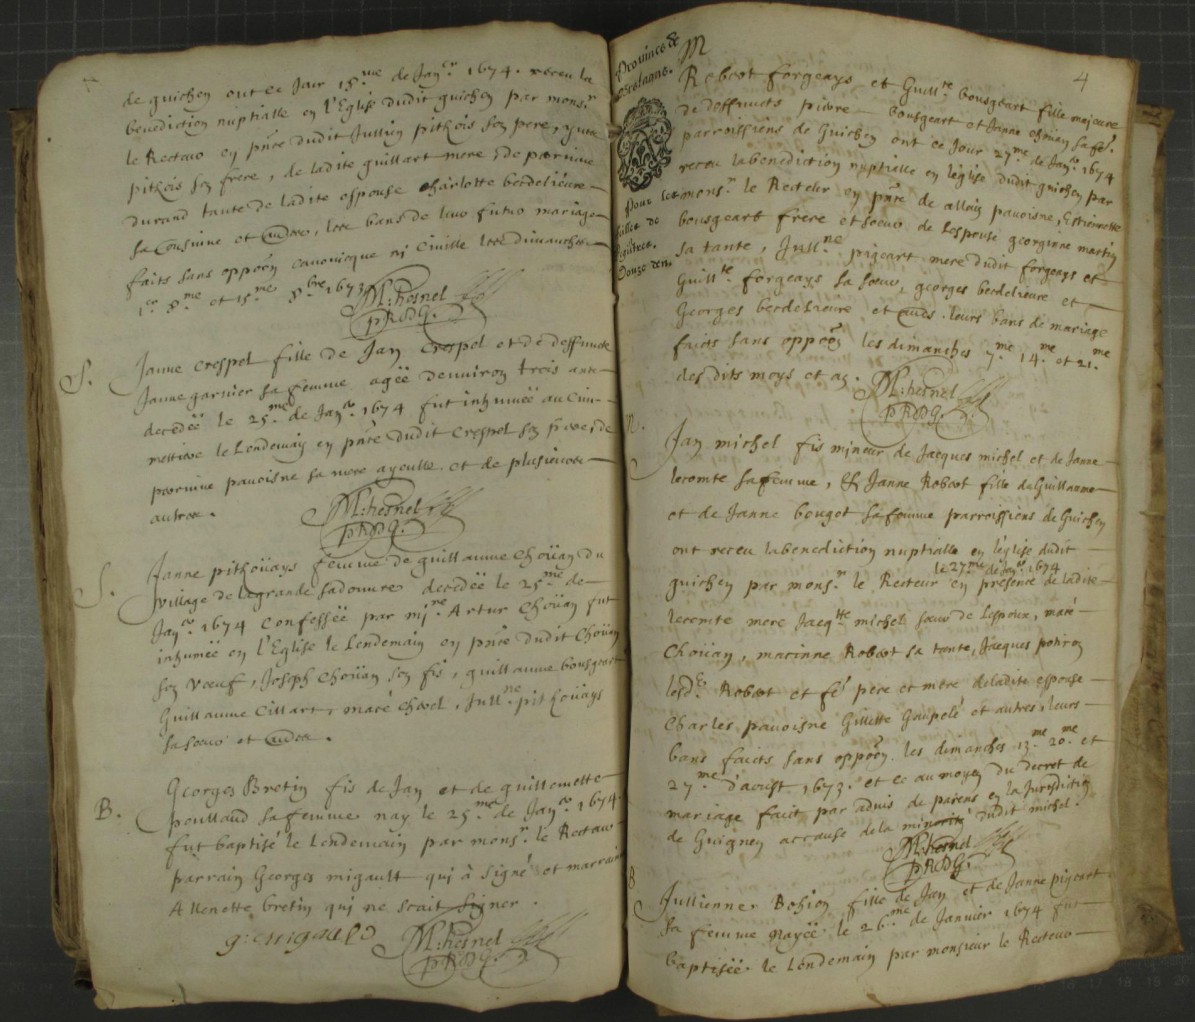 de guichen ont ce Jour 15me de Janvr 1674. receu la
benediction nuptialle en l'Eglise dudit guichen par monsr
le Recteur en pnce dudit Jullien pithois son pere,
pithois son frere, de ladite guillart mere, de perrine
durand tante de ladite espouse Charlotte berdelieure
sa Cousine et autres, les bans de leur futur mariage
faits sans oppoon canonicque ni Civille les dimanches
1er 8me et 15me 8bre 1673
M: hesnel
PRDG.
S. Janne Crespel fille de Jan Crespel et de deffuncte
Janne garnier sa femme agëë denuiron trois ans
decedëë le 25me de Janvr 1674 fut inhumëë au Cim-
mettiere le Lendemain en pnce dudit Crespel son pere, de
perrine pauoisne sa mere ayeulle et de plusieurs
autres.
M: hesnel
PRDG.
S. Janne pithoüays femme de guillaume Choüan du
village de la grande sadouure decedëë le 25me de
Janvr 1674 Confessëë par mire Artur Choüan fut
inhumëë en l'Eglise le Lendemain en pnce dudit Choüan
son Vœuf, Joseph Choüan son fis, guillaume bousgeart
Guillaume Cillart, macé Chevel, Jullne pithoüays
sa sœur et autres.
B. Georges Bretin fis de Jan et de guillemette
poullaud sa femme nay le 25me de Janvr 1674.
fut baptisé le Lendemain par monsr le Recteur
parrain Georges migault qui à signé et marraine
Allenette bretin qui ne scait signer.
g: migauld
M: hesnel
PRDG.
4
Prouince de
Bretagne.
Pour les
Douze den.
M
Robert forgeays et Guillte bousgeart fille majeure
de deffuncts pierre bousgeart et Janne sa fe.
parroissiens de Guichen ont ce Jour 27me de Janvr 1674
receu la benediction nuptialle en l'église dudit guichen par
monsr le Recteur en pnce de allain pauoisne,
bousgeart frere et sœur de lespouse georginne martin
sa tante, Jullne pigeart mere dudit forgeays et
Guillte forgeays sa sœur, georges berdelieure et
Georges berdelieure et autres. leurs bans de mariage
faicts sans oppoon les dimanches 7me 14me et 21me
des dits moys et an.
M: hesnel
PRDG.
M. Jan michel fis mineur de Jacques michel et de Janne
lecomte sa femme, Et Janne Robert fille de Guillaume
et de Janne bouget sa femme parroissiens de Guichen
ont receu la benediction nuptialle en l'église dudit
le 27me de Janvr 1674
guichen par monsr le Recteur en presence de ladite
lecomte mere Jacqtte michel sœur de Lespoux, macé
Choüan, macinne Robert sa tante, Jacques poiron
Robert et fe pere et mere de ladite espouse
Charles pauoisne Gillette Gaupelé et autres, leurs
bans faicts sans oppoon les dimanches 13me 20me et
27me d'aoust 1673. et ce au moyen du decret de
mariage faict par aduis de parens en la Jurisdiction
de Guignen accause de la minorité dudit michel.
M: hesnel
PRDG.
B Jullienne Bohion fille de Jan et de Janne pigeart
sa femme nayëë le 26me de Januier 1674 fut
baptisëë le Lendemain par monsieur le Recteur